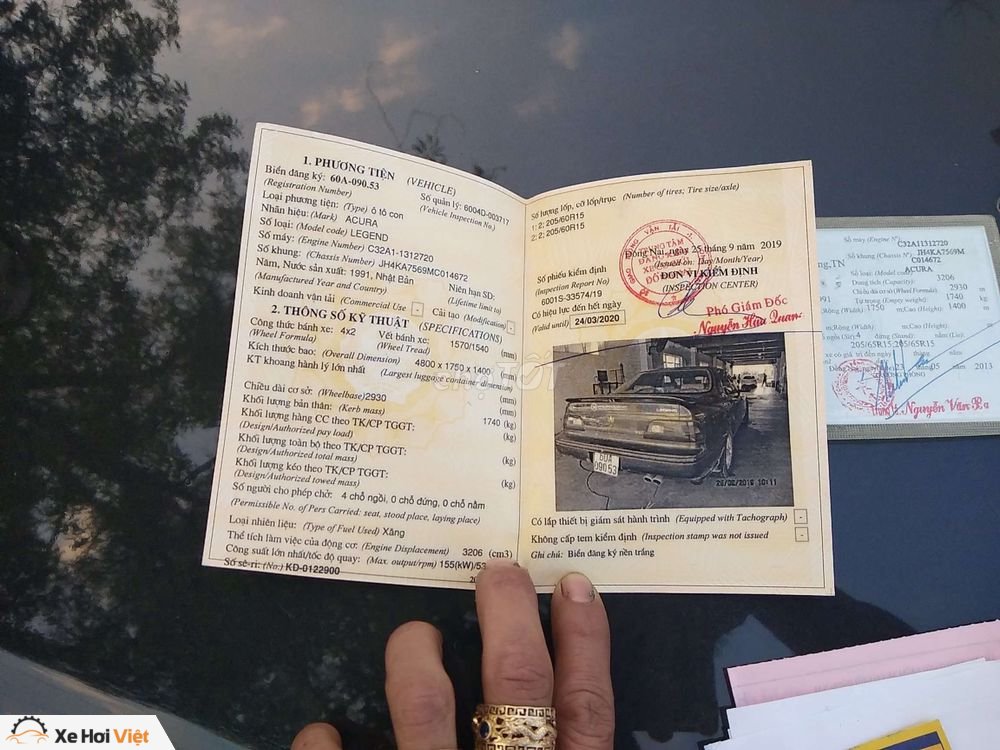 1. PHƯƠNG TIỆN (VEHICLE)
Biển đăng ký: 60A-090.53 Số quản lý: 6004D-003717
(Registration Number) (Vehicle Inspection No)
Loại phương tiện: (Type) ô tô con
Nhãn hiệu: (Mark) ACURA
Số loại: (Model code) LEGEND
Số máy: (Engine Number) C32A1-1312720
Số khung: (Chassis Number) JH4KA7569MC014672
Năm, Nước sản xuất: 1991, Nhật Bản Niên hạn SD:
(Manufactured Year and Country) (Lifetime limit to)
Kinh doanh vận tải (Commercial Use) - Cải tạo (Modification) -
2. THÔNG SỐ KỸ THUẬT (SPECIFICATIONS)
Công thức bánh xe: 4x2 Vết bánh xe: 1570/1540 (mm)
(Wheel Formula) (Wheel Tread)
Kích thước bao: (Overall Dimension) 4800 x 1750 x 1400 (mm)
KT khoang hành lý lớn nhất (Largest luggage container dimension)
(mm)
Chiều dài cơ sở: (Wheelbase) 2930 (mm)
Khối lượng bản thân: (Kerb mass) 1740 (kg)
Khối lượng hàng CC theo TK/CP TGGT: (kg)
(Design/Authorized pay load)
Khối lượng toàn bộ theo TK/CP TGGT: (kg)
(Design/Authorized total mass)
Khối lượng kéo theo TK/CP TGGT: (kg)
(Design/Authorized towed mass)
Số người cho phép chở: 4 chỗ ngồi, 0 chỗ đứng, 0 chỗ nằm
(Permissible No. of Pers Carried: seat, stood place, laying place)
Loại nhiên liệu: (Type of Fuel Used) Xăng
Thể tích làm việc của động cơ: (Engine Displacement) 3206 (cm3)
Công suất lớn nhất/tốc độ quay: (Max. output/rpm) 155(kW)/53
Số sê-ri: (No.) KD-0122900
Số lượng lốp, cỡ lốp/trục (Number of tires; Tire size/axle)
1: 2; 205/60R15
2: 2; 205/60R15
Đồng Nai, ngày 25 tháng 9 năm 2019
(Issued on: Day/Month/Year)
Số phiếu kiểm định ĐƠN VỊ KIỂM ĐỊNH
(Inspection Report No) (INSPECTION CENTER)
6001S-33574/19
Có hiệu lực đến hết ngày
(Valid until) 24/03/2020
Phó Giám Đốc
Nguyễn Hữu Quan
60A
090.53
Có lắp thiết bị giám sát hành trình (Equipped with Tachograph) -
Không cấp tem kiểm định (Inspection stamp was not issued -
Ghi chú: Biển đăng ký nền trắng
Số máy (Engine N°)
C32A11312720
Số khung (Chassis N°)
JH4KA7569M
C014672
ACURA
Số loại: (Model code)
Dung tích (Capacity): 3206
2930 m
Tự trọng (Empty weight): 1740 kg
1750 m; Cao (Height): 1400
205/65R15 205/65R15
05 2013
Nguyễn Văn Ba
Xe Hơi Việt